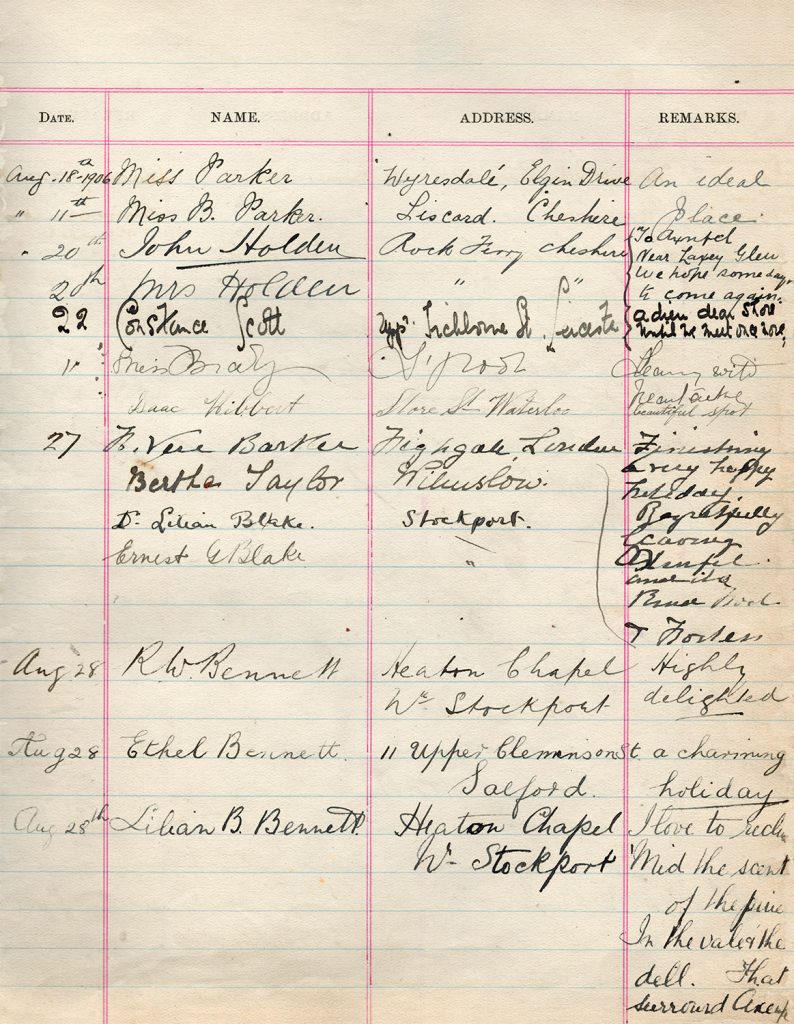 DATE. NAME. ADDRESS. REMARKS.
Aug. 18th 1906 Miss Parker Wyresdale, Elgin Drive An ideal
" 11th Miss B. Parker. Liscard. Cheshire Place.
" 20th John Holden Rock Ferry Cheshire To Axnfel
Near Laxey Glen
20th Mrs Holden " " We hope some day
to come again.
22 Constance Scott Uppr. Tichborne St. Leicester adieu dear Store
until we meet once more,
" Miss L'pool with
Isaac Hibbert Store St Waterloo
beautiful spot
27 F. Vere Barker Highgate, London Finishing
Bertha Taylor Wilmslow. a very happy
holiday.
Dr. Lilian Blake. Stockport. Regretfully
leaving
Ernest G Blake "
and its
& Hostess
Aug 28 R.W. Bennett Heaton Chapel Highly
Nr Stockport delighted
Aug 28 Ethel Bennett. 11 Upper Clemenson St. a charming
Salford. holiday
Aug 28th Lilian B. Bennett. Heaton Chapel I love to
Nr Stockport 'Mid the scent
of the pine
In the vale & the
dell. That
surround